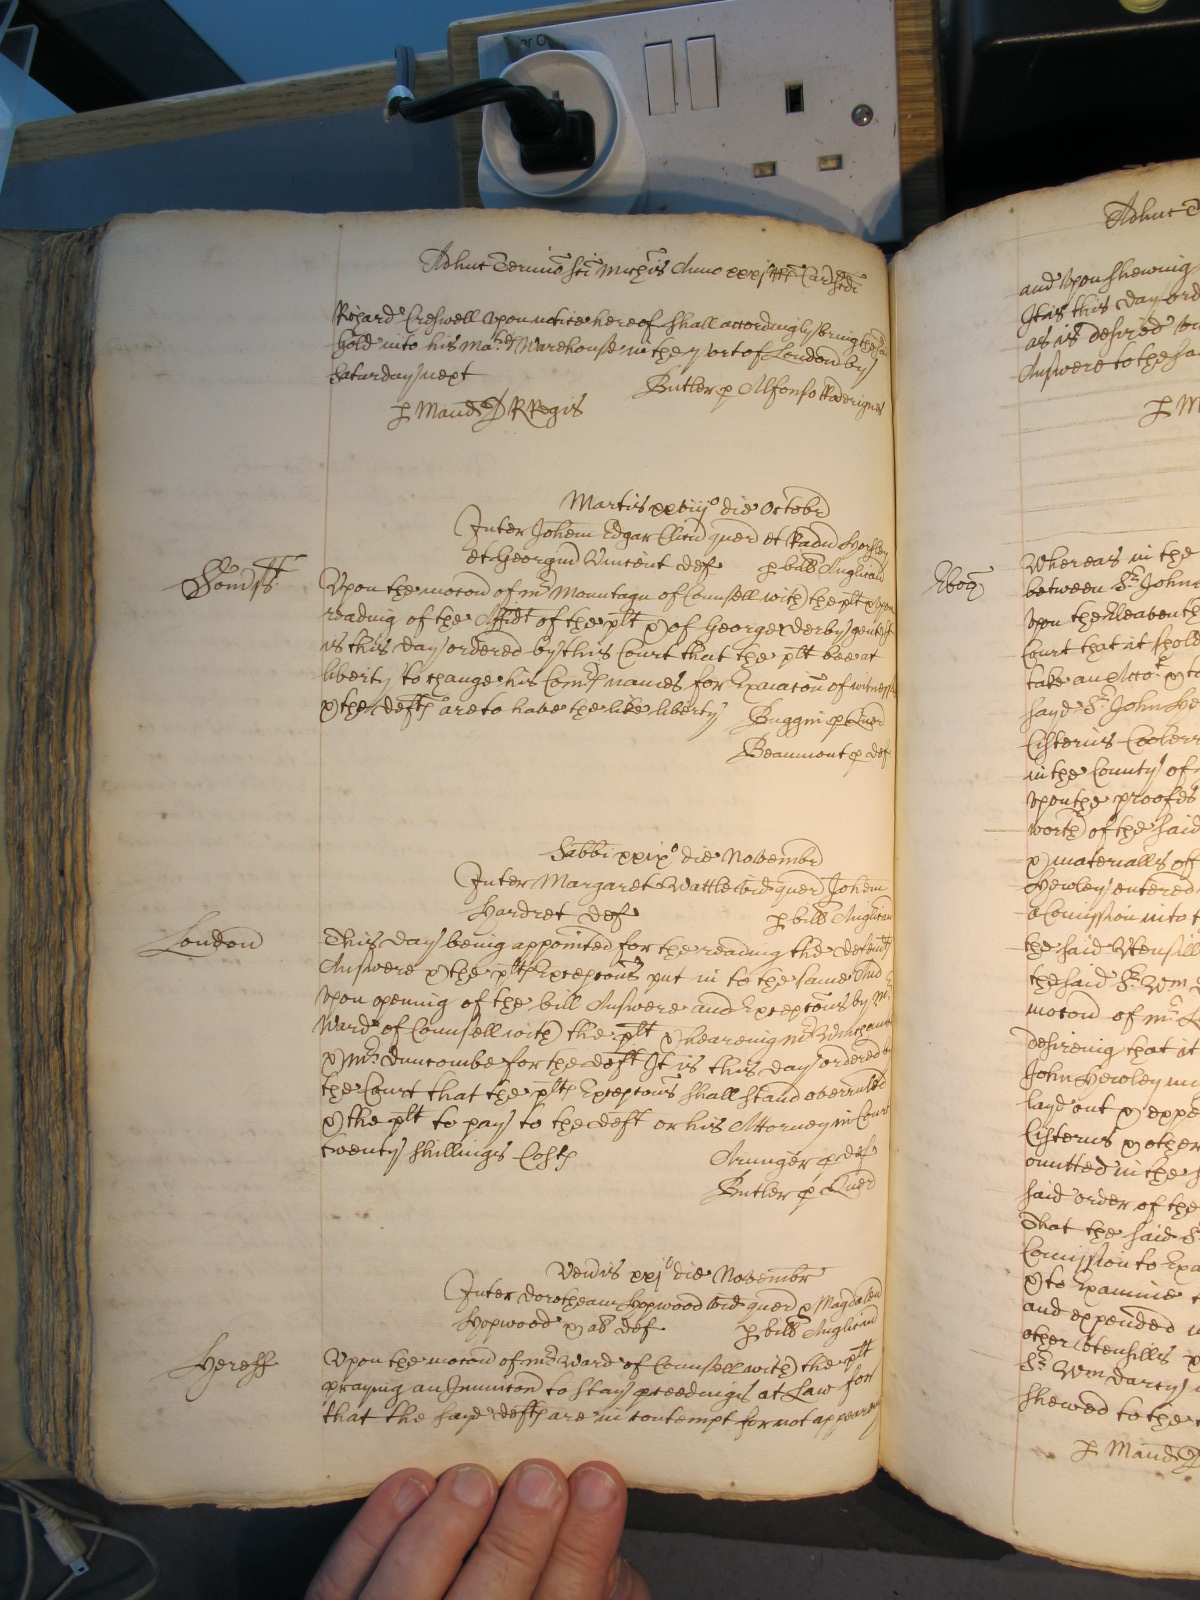 Adhuc Termino Sci Michis Anno xxxj Car Scdi
Richard Creswell upon notice hereof shall accordingly bring the sd
gold into his Mats Warehouse in the port of London by
Saturday next
Butler p Alfonso Roderigues
p Maud R Regis
Martis xxviij° die Octobr
Inter Johem Edgar Clicu quer et Radu Horsley
et Georgiu Vincent def p bill Anglican
Somsts
Upon the motion of mr Mountagu of Counsell with the plt & upon
reading of the Affidt of the plt & of George Derby gent It
is this day ordered by this Court that the plt bee at
liberty to change his Comrs names for Exaiacon of witnesses
& the defts are to have the like liberty Buggin p Quer
Beaumont p def
Sabbi xxix° die Novembr
Inter Margaret Wattle vid quer Johem
Hardret def p bill Anglican
London
This day being appointed for the reading the defendts
Answere & the plts Excepcons put in to the same And
upon opening of the bill Answere and Excepcons by mr
Ward of Counsell with the plt & hearenig mr
& mr Duncombe for the deft It is this day ordered by
the Court that the plts Excepcons shall stand overruled
& the plt to pay to the deft or his Attorney in Court
twenty shillings Costs Arunger p def
Butler p Quer
Venis xxj° die Novembr
Inter Dorotheam Hopwood vid quer & Magdalen
Hopwood & al def p bill Anglican
Hereff
Upon the motion of mr Ward of Counsell with the plt
praying an Iniuncon to stay pceedings at Law for
that the said defts are in contempt for not appearing
Adhuc T
and upon shewing
It is this day ord
as is desired
Answere to the sa
p M
Eboq
Whereas in the
between Sr John
upon the Eleaventh
Court that it shold
take an Acco &
sayd Sr John He
Cisterns Cooler
in the County of
upon the proofes
worth of the said
& materialls of
Hewley entered
a Comission into t
the said Utensill
the said Sr Wm
motion of mr L
desirenig that it
John Hewley
layd out & expe
Cisterns & other
omitted in the s
said order of the
That the said S
Comission to Exa
& to Examine t
and expended
other Utensills
Sr Wm Darcy
shewed to the
p Maud